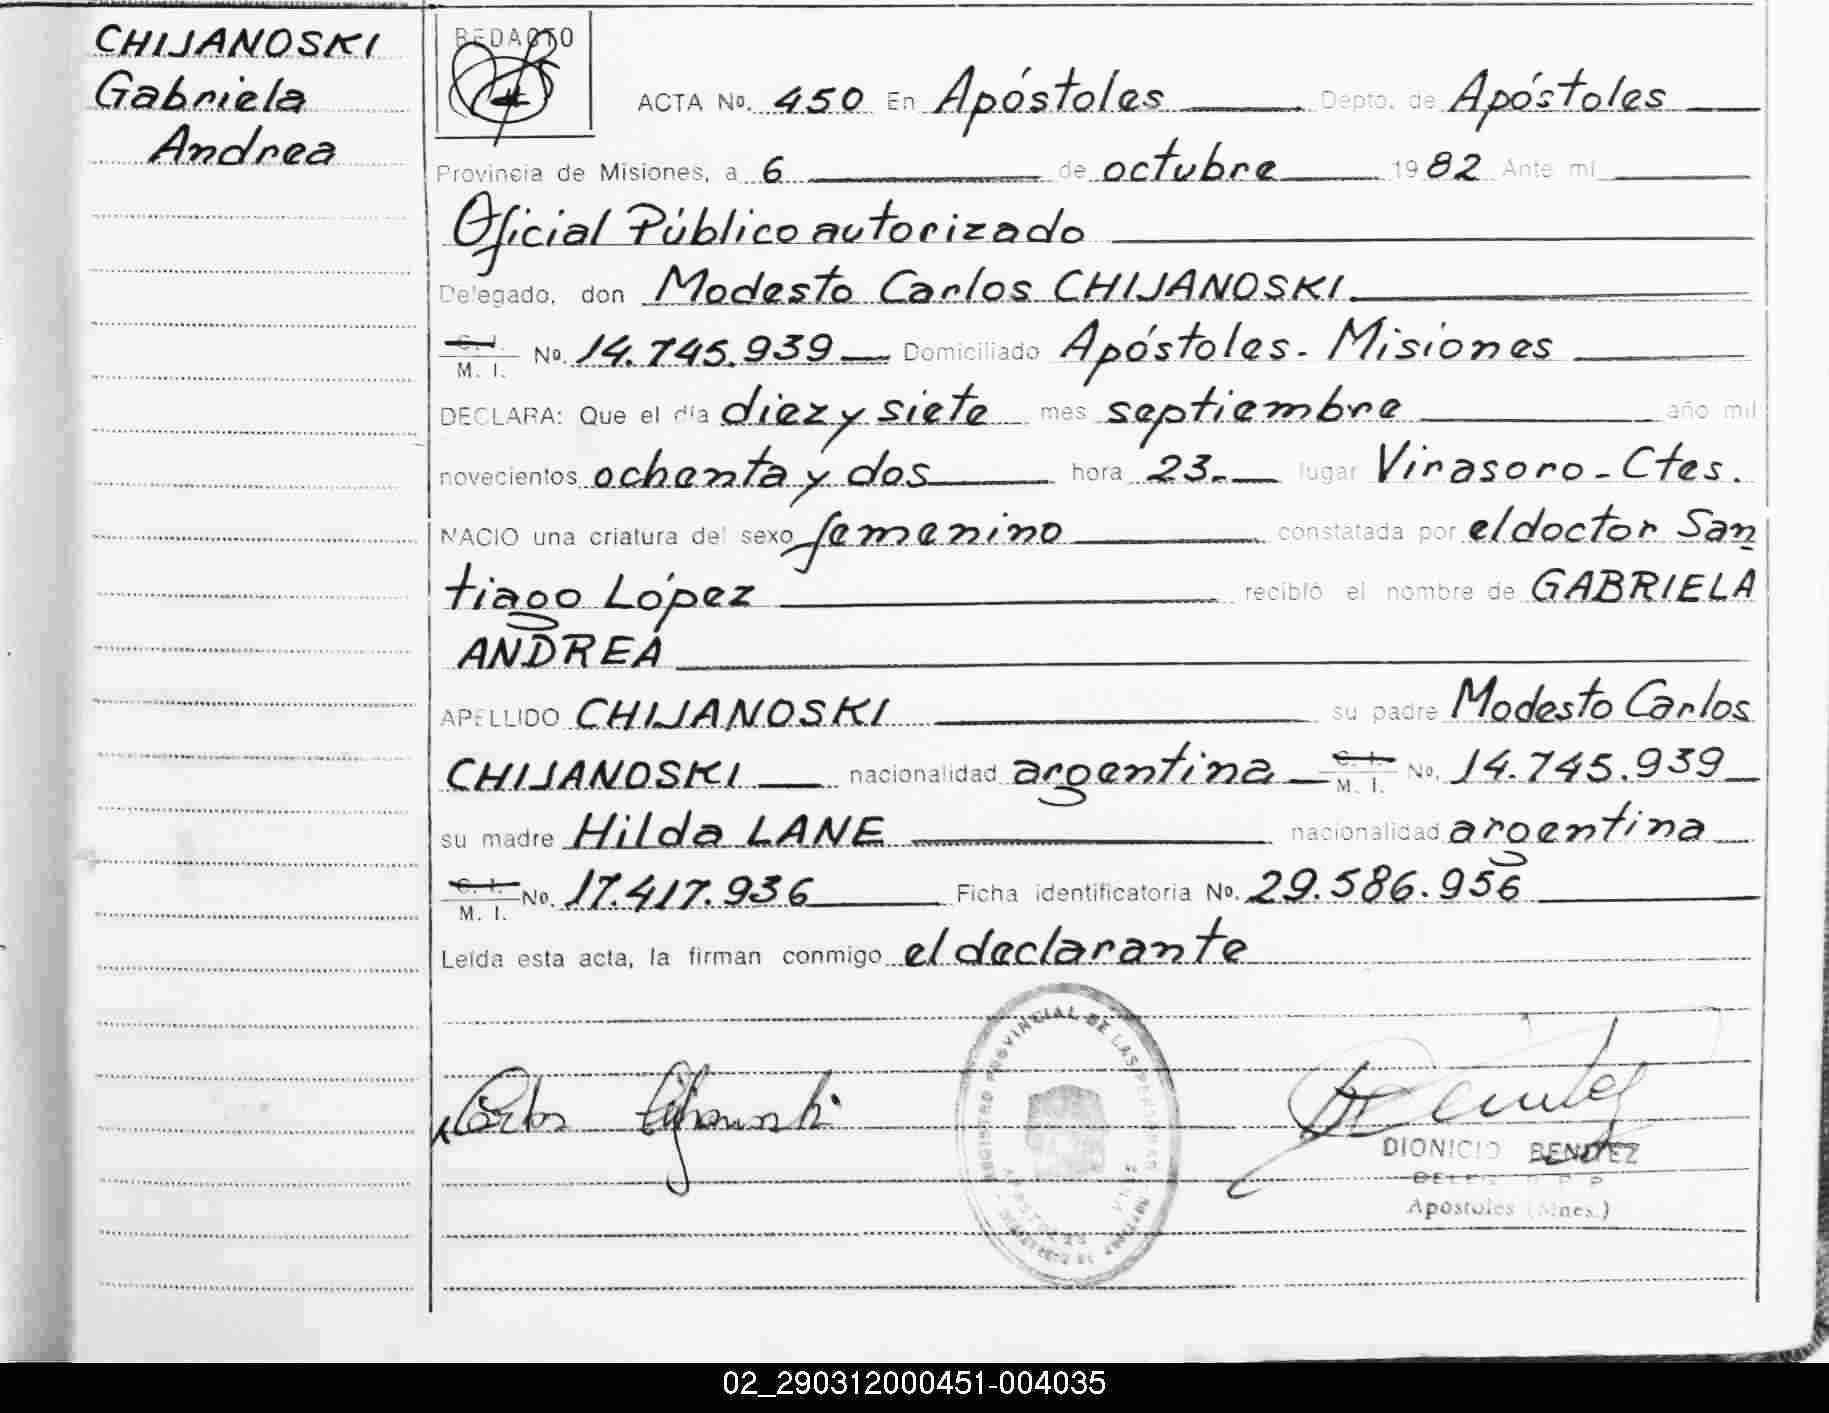 CHIJANOSKI
Gabriela
Andrea
REDACTO
ACTA No. 450 En Apóstoles Depto. de Apóstoles
Provincia de Misiones, a 6 de octubre 1982 Ante mí
Oficial Público autorizado
Delegado, don Modesto Carlos CHIJANOSKI
C. I.
M. I. No. 14.745.939 Domiciliado Apóstoles - Misiones
DECLARA: Que el día diez y siete mes septiembre año mil
novecientos ochenta y dos hora 23.- lugar Virasoro - Ctes.
NACIO una criatura del sexo femenino constatada por el doctor San
tiago López recibió el nombre de GABRIELA
ANDREA
APELLIDO CHIJANOSKI su padre Modesto Carlos
CHIJANOSKI nacionalidad argentina C. I. M. I. No. 14.745.939
su madre Hilda LANE nacionalidad argentina
C. I.
M. I. No. 17.417.936 Ficha identificatoria No. 29.586.956
Leída esta acta, la firman conmigo el declarante
REGISTRO PROVINCIAL DE LAS PERSONAS
APOSTOLES
Carlos Chijanoski
DIONICIO BENITEZ
Apóstoles (Mnes.)
02_290312000451-004035